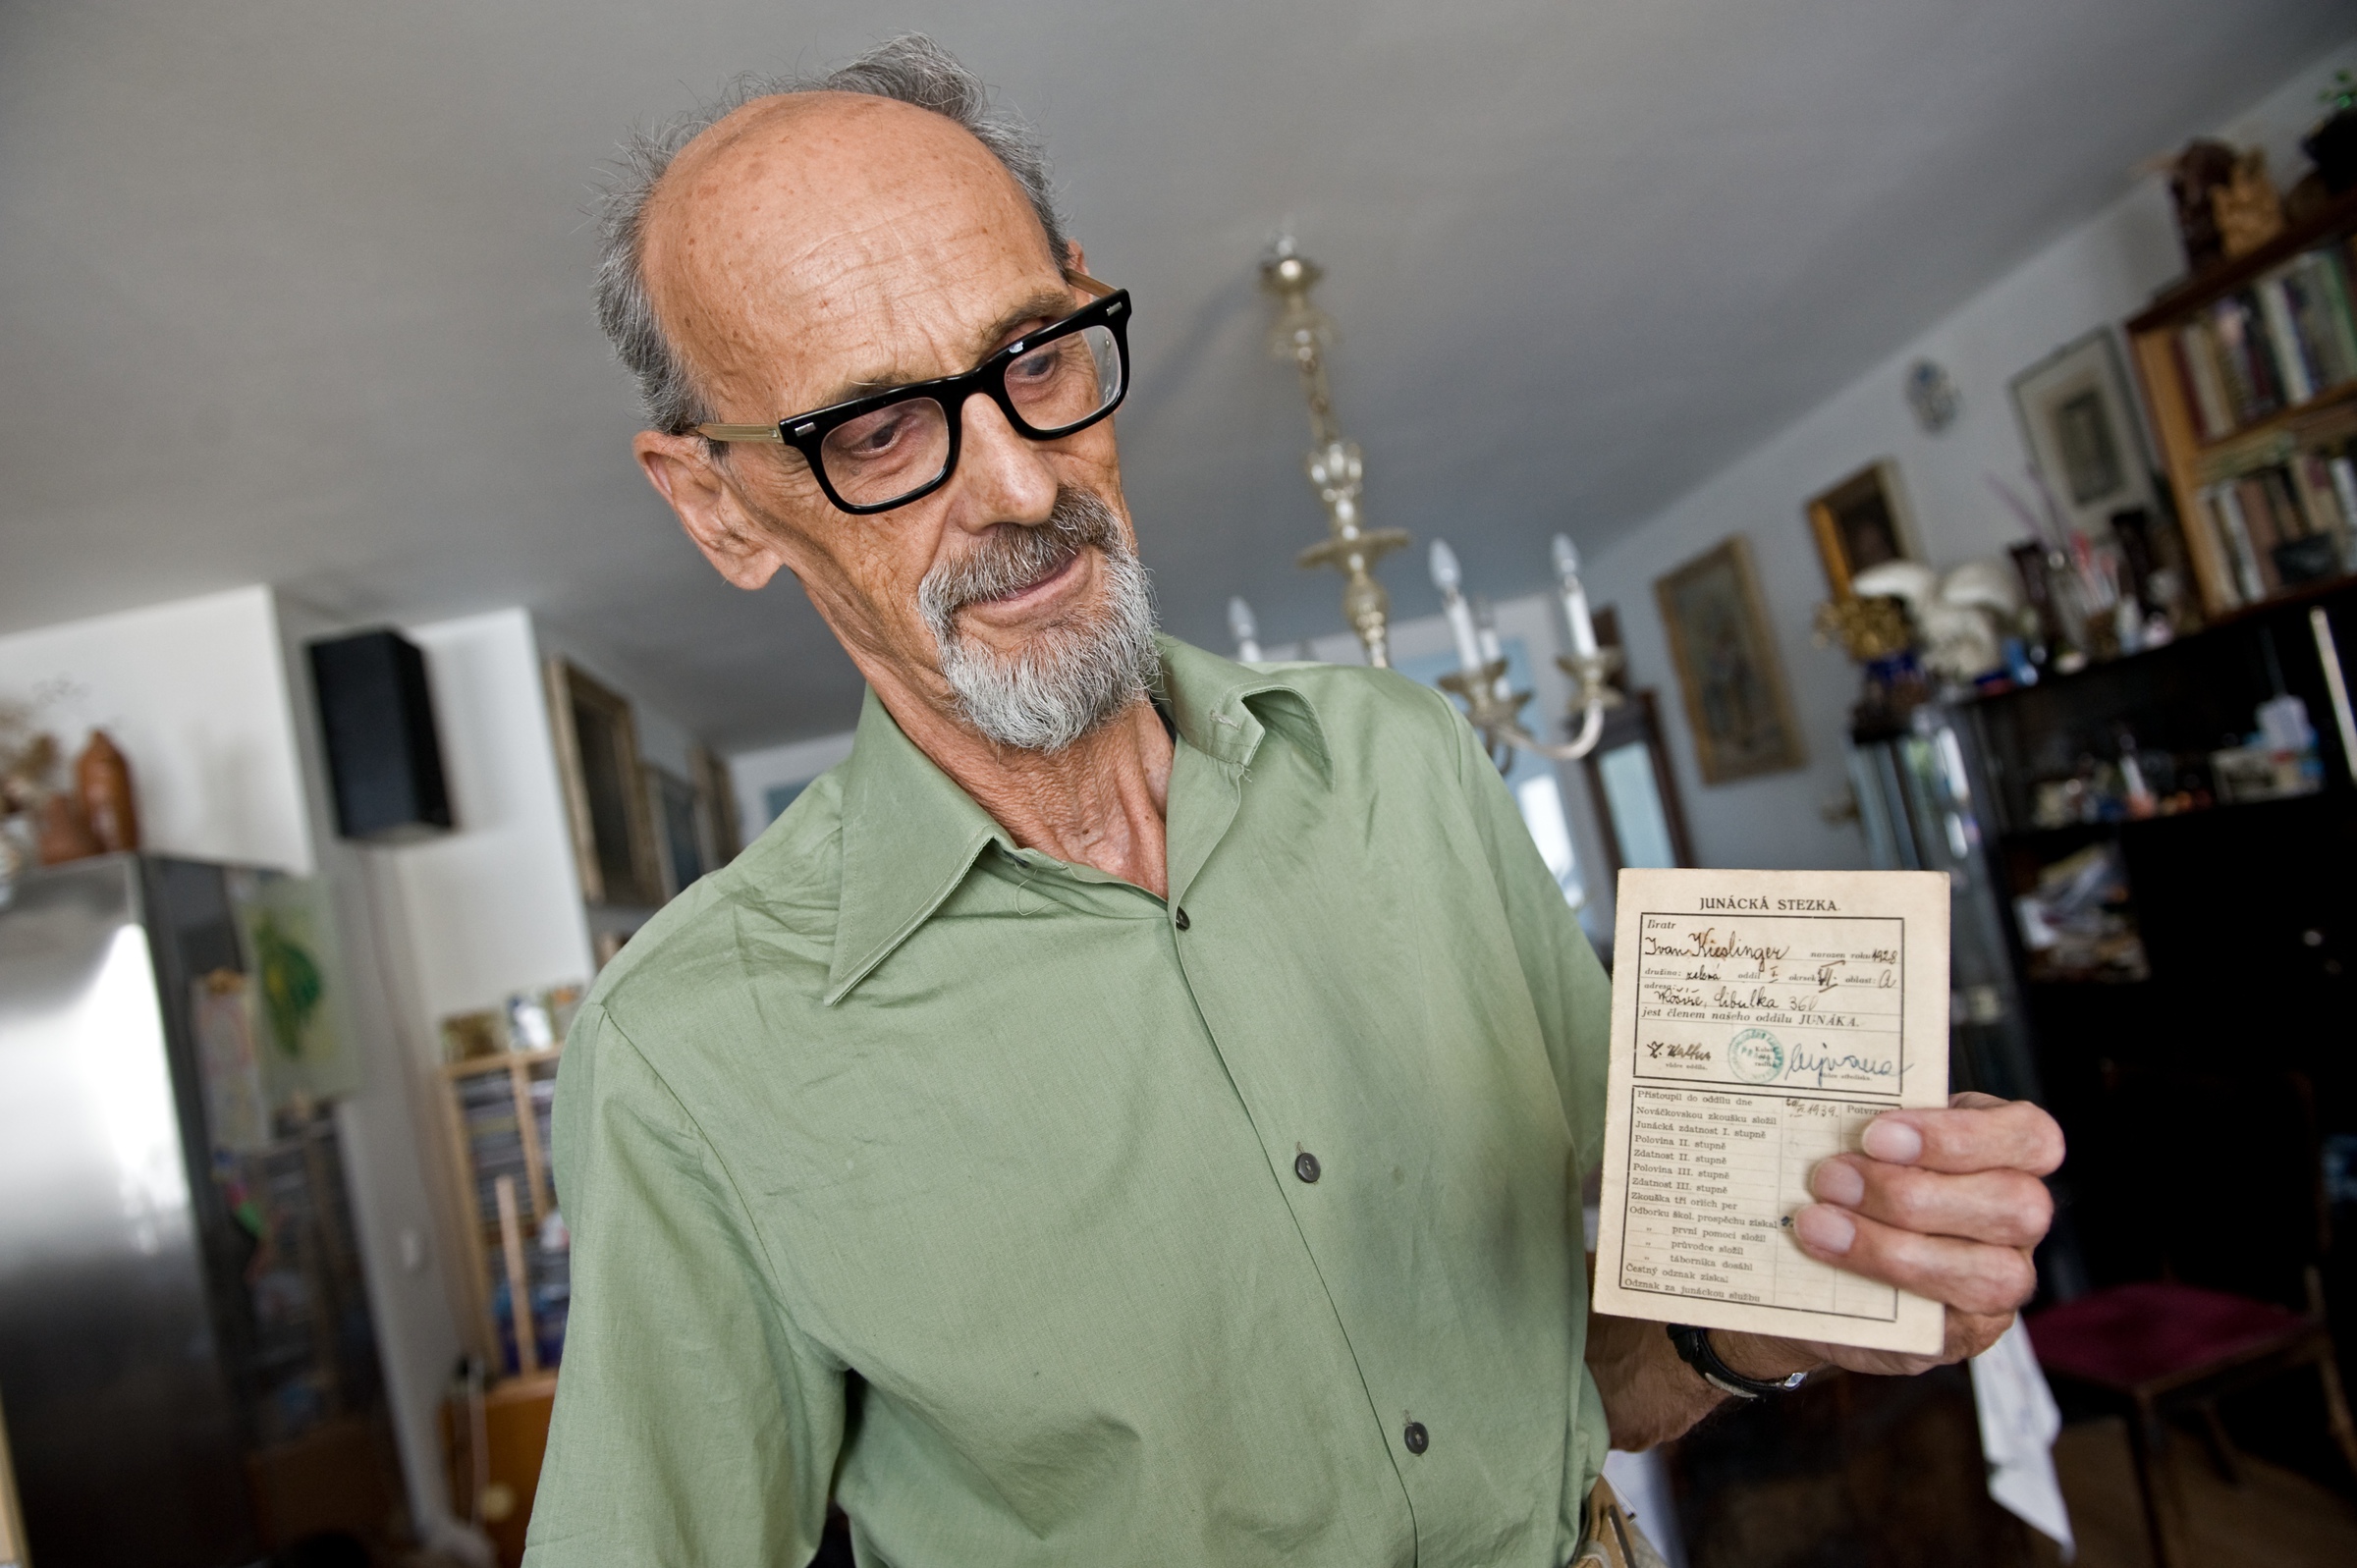 JUNÁCKÁ STEZKA.
Bratr
Ivan Kieslinger narozen roku 1928
družina: zelená oddíl I. okrsek VII. oblast: A
adresa:
Košíře, Cibulka 361
jest členem našeho oddílu JUNÁKA.
vůdce oddílu.
Přistoupil do oddílu dne 1939. Potvrz
Nováčkovskou zkoušku složil
Junácká zdatnost I. stupně
Polovina II. stupně
Zdatnost II. stupně
Polovina III. stupně
Zdatnost III. stupně
Zkouška tří orlích per
Odborku škol. prospěchu získal
„ první pomoci složil
„ průvodce složil
„ táborníka dosáhl
Čestný odznak získal
Odznak za junáckou službu